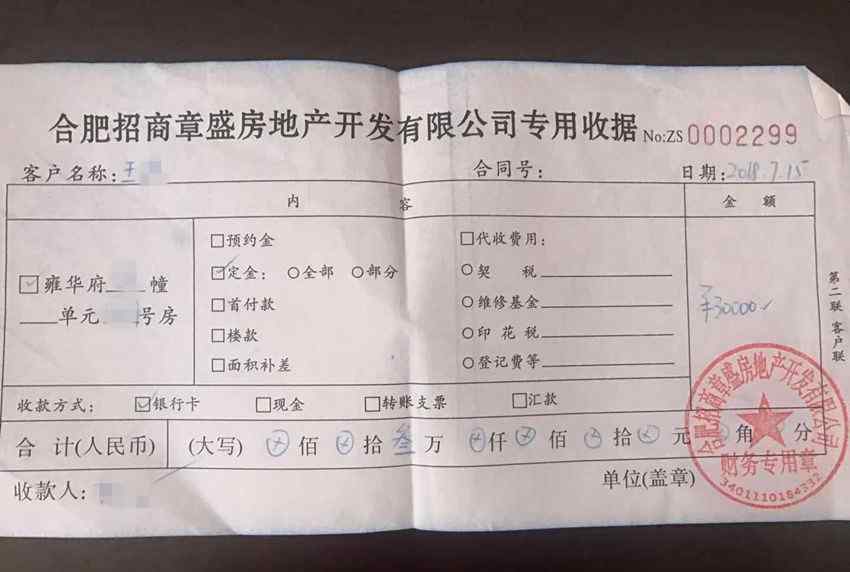 合肥招商章盛房地产开发有限公司专用收据 No:ZS 0002299
客户名称:王 合同号: 日期:2018.7.15
内 容 金 额
□预约金 □代收费用:
☑雍华府 幢 ☑定金: ○全部 ○部分 ○契 税
单元 号房 □首付款 ○维修基金
□楼款 ○印花税
□面积补差 ○登记费等
¥30000
第二联 客户联
收款方式: ☑银行卡 □现金 □转账支票 □汇款
合 计(人民币) (大写) ⊗佰⊗拾叁万⊗仟⊗佰⊗拾⊗元⊗角 分
收款人: 单位(盖章)
合肥招商章盛房地产开发有限公司
财务专用章
3401110184332